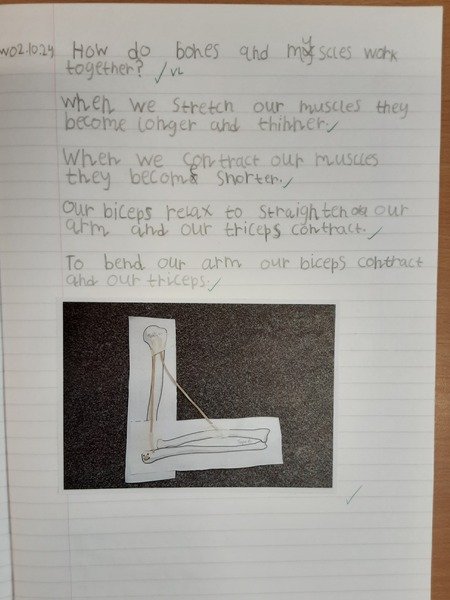 W02.10.24 How do bones and muscles work
together?
When we stretch our muscles they
become longer and thinner.
When we contract our muscles
they become shorter.
Our biceps relax to straighten our
arm and our triceps contract.
To bend our arm our biceps contract
and our triceps.